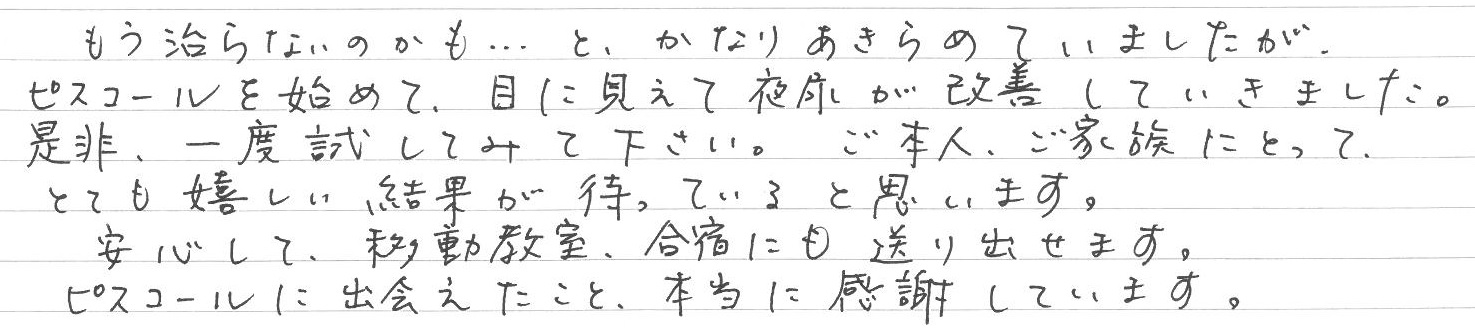 もう治らないのかも…と、かなりあきらめていましたが、
ピスコールを始めて、目に見えて夜尿が改善していきました。
是非、一度試してみて下さい。ご本人、ご家族にとって、
とても嬉しい結果が待っていると思います。
安心して、移動教室、合宿にも送り出せます。
ピスコールに出会えたこと、本当に感謝しています。